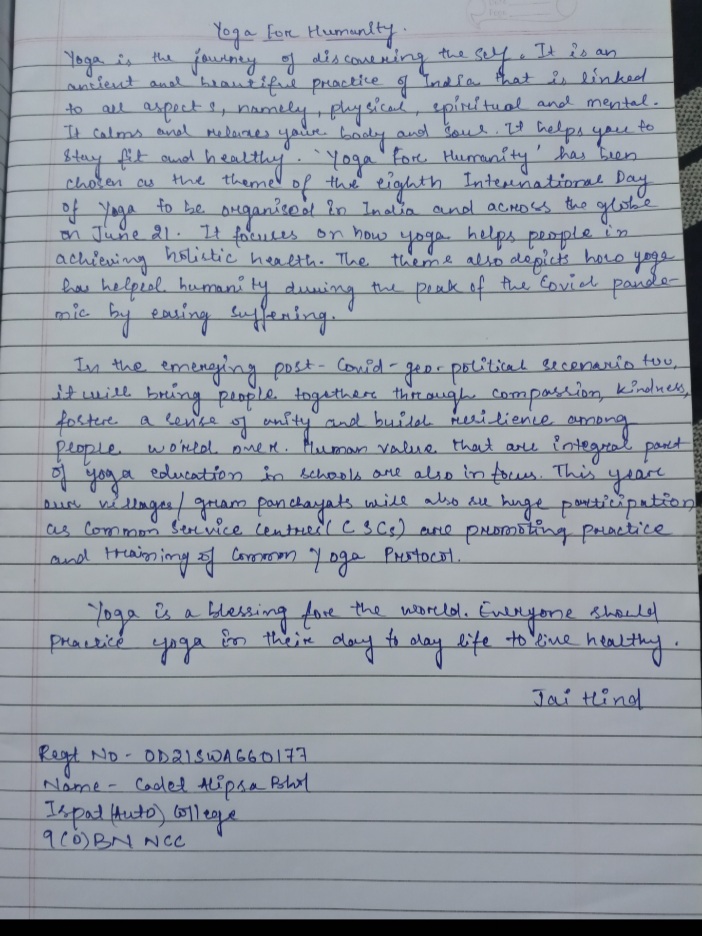 Yoga For Humanity.
Yoga is the journey of discovering the self. It is an
ancient and beautiful practice of India that is linked
to all aspects, namely, physical, spiritual and mental.
It calms and relaxes your body and soul. It helps you to
stay fit and healthy. 'Yoga for Humanity' has been
chosen as the theme of the eighth International Day
of Yoga to be organised in India and across the globe
on June 21. It focuses on how yoga helps people in
achieving holistic health. The theme also depicts how yoga
has helped humanity during the peak of the Covid pande-
mic by easing suffering.
In the emerging post-Covid-geo-political secenario too,
it will bring people together through compassion, kindness,
foster a sense of unity and build resilience among
people world over. Human value that are integral part
of yoga education in schools are also in focus. This year
our villages/gram panchayats will also see huge participation
as Common Service Centres (CSCs) are promoting practice
and training of Common Yoga Protocol.
Yoga is a blessing for the world. Everyone should
practice yoga in their day to day life to live healthy.
Jai Hind
Regt No - OD21SWA660177
Name - Cadet Alipsa
Ispat (Auto) College
9(O)BN NCC